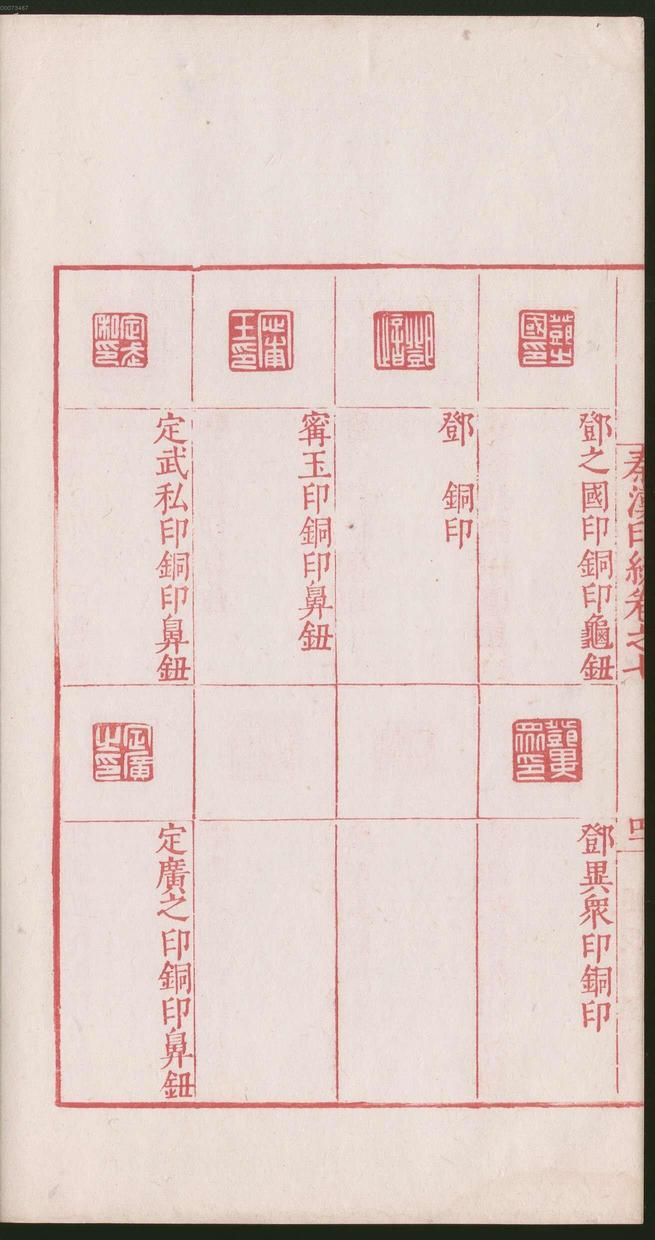 00073467
秦漢印統卷之七
鄧之國印銅印龜鈕
鄧異衆印銅印
鄧 銅印
甯玉印銅印鼻鈕
定武私印銅印鼻鈕
定廣之印銅印鼻鈕